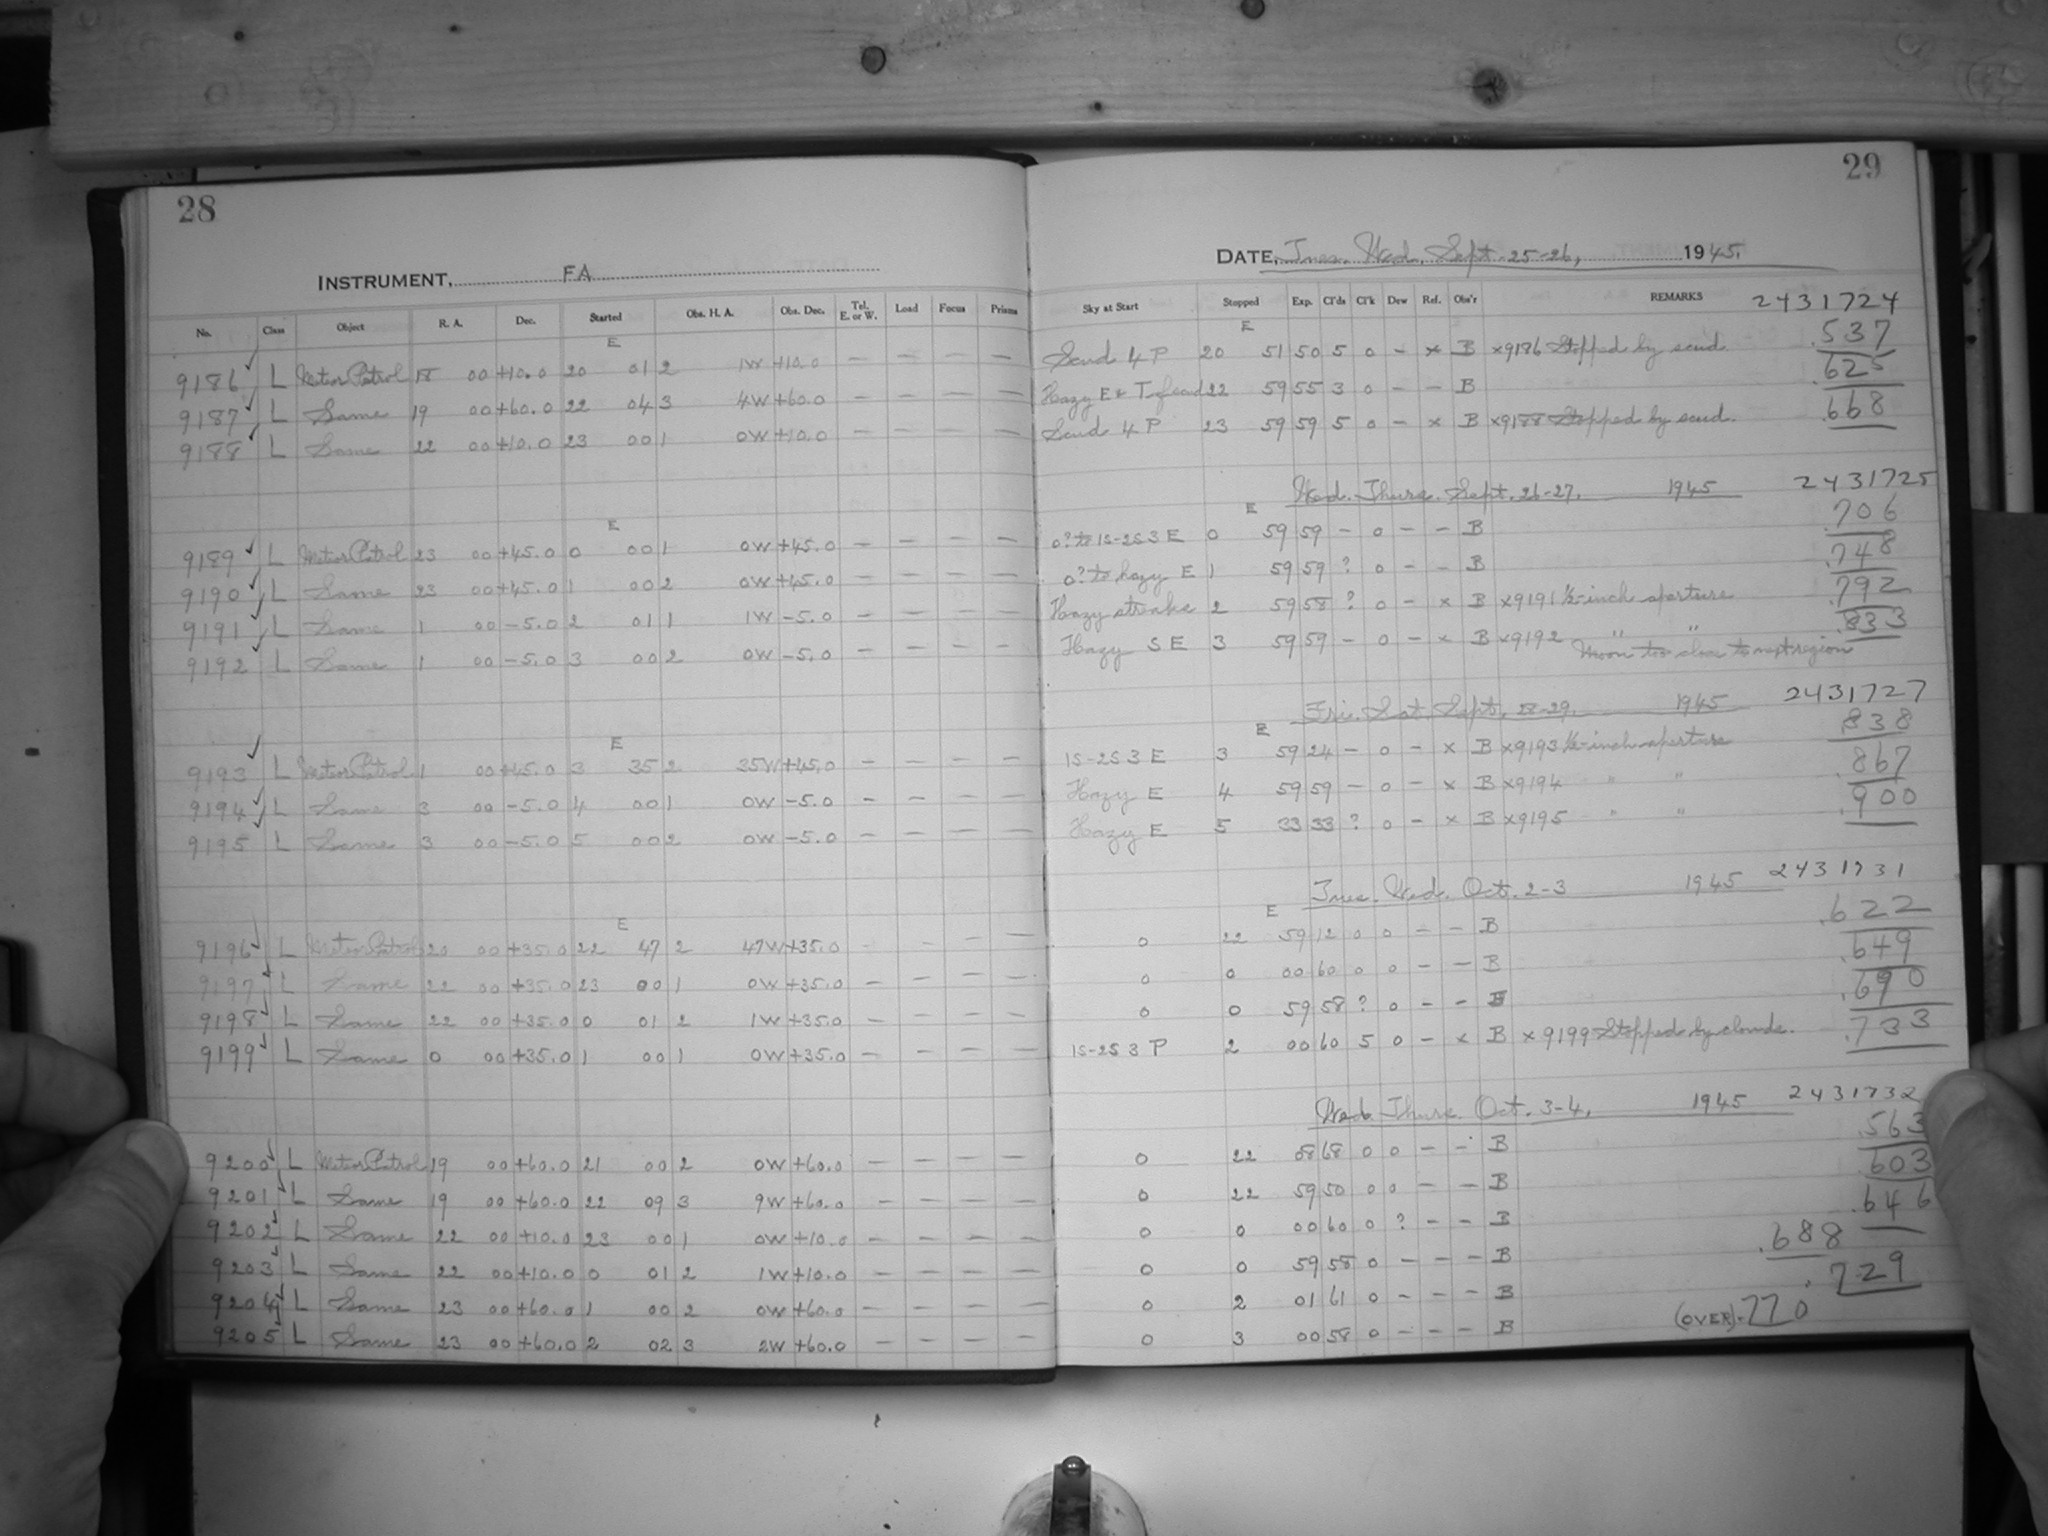 28
29
INSTRUMENT, FA
DATE, Tues. Wed. Sept. 25-26, 1945.
No. Class Object R. A. Dec. Started Obs. H. A. Obs. Dec. Tel. E. or W. Load Focus Prisms Sky at Start Stopped Exp. Cl'ds Cl'k Dew Ref. Obs'r REMARKS 2431724
E E
9186 L Meteor Patrol 18 00 +10.0 20 01 2 1W +10.0 — — — — Scud 4 P 20 51 50 5 0 - x B x9186 Stopped by scud .537
9187 L Same 19 00 +60.0 22 04 3 4W +60.0 — — — — Hazy E + 22 59 55 3 0 - - B .625
9188 L Same 22 00 +10.0 23 00 1 0W +10.0 — — — — Scud 4 P 23 59 59 5 0 - x B x9188 Stopped by scud. .668
Wed. Thurs. Sept. 26-27, 1945 2431725
E E
9189 L Meteor Patrol 23 00 +45.0 0 00 1 0W +45.0 — — — — 0? to 1S-2S 3 E 0 59 59 - 0 - - B .706
9190 L Same 23 00 +45.0 1 00 2 0W +45.0 — — — — 0? to hazy E 1 59 59 ? 0 - - B .748
9191 L Same 1 00 -5.0 2 01 1 1W -5.0 — — — — Hazy streaks 2 59 58 ? 0 - x B x9191 ½-inch aperture .792
9192 L Same 1 00 -5.0 3 00 2 0W -5.0 — — — — Hazy S E 3 59 59 - 0 - x B x9192 " " .833
Moon too close to next region
Fri. Sat. Sept. 28-29, 1945 2431727
E E
9193 L Meteor Patrol 1 00 +45.0 3 35 2 35W +45.0 — — — — 1S-2S 3 E 3 59 24 - 0 - x B x9193 ½-inch aperture .838
9194 L Same 3 00 -5.0 4 00 1 0W -5.0 — — — — Hazy E 4 59 59 - 0 - x B x9194 " " .867
9195 L Same 3 00 -5.0 5 00 2 0W -5.0 — — — — Hazy E 5 33 33 ? 0 - x B x9195 " " .900
Tues. Wed. Oct. 2-3 1945 2431731
E E
9196 L Meteor Patrol 20 00 +35.0 22 47 2 47W +35.0 - — — — 0 22 59 12 0 0 - - B .622
9197 L Same 22 00 +35.0 23 00 1 0W +35.0 — — — — 0 0 00 60 0 0 - - B .649
9198 L Same 22 00 +35.0 0 01 2 1W +35.0 — — — — 0 0 59 58 ? 0 - - B .690
9199 L Same 0 00 +35.0 1 00 1 0W +35.0 — — — — 1S-2S 3 P 2 00 60 5 0 - x B x9199 Stopped by clouds. .733
Wed. Thurs. Oct. 3-4, 1945 2431732
9200 L Meteor Patrol 19 00 +60.0 21 00 2 0W +60.0 — — — — 0 22 08 68 0 0 - - B .563
9201 L Same 19 00 +60.0 22 09 3 9W +60.0 — — — — 0 22 59 50 0 0 - - B .603
9202 L Same 22 00 +10.0 23 00 1 0W +10.0 — — — — 0 0 00 60 0 ? - - B .646
9203 L Same 22 00 +10.0 0 01 2 1W +10.0 — — — — 0 0 59 58 0 - - - B .688
9204 L Same 23 00 +60.0 1 00 2 0W +60.0 — — — — 0 2 01 61 0 - - - B .729
9205 L Same 23 00 +60.0 2 02 3 2W +60.0 — — — — 0 3 00 58 0 - - - B (OVER) .770